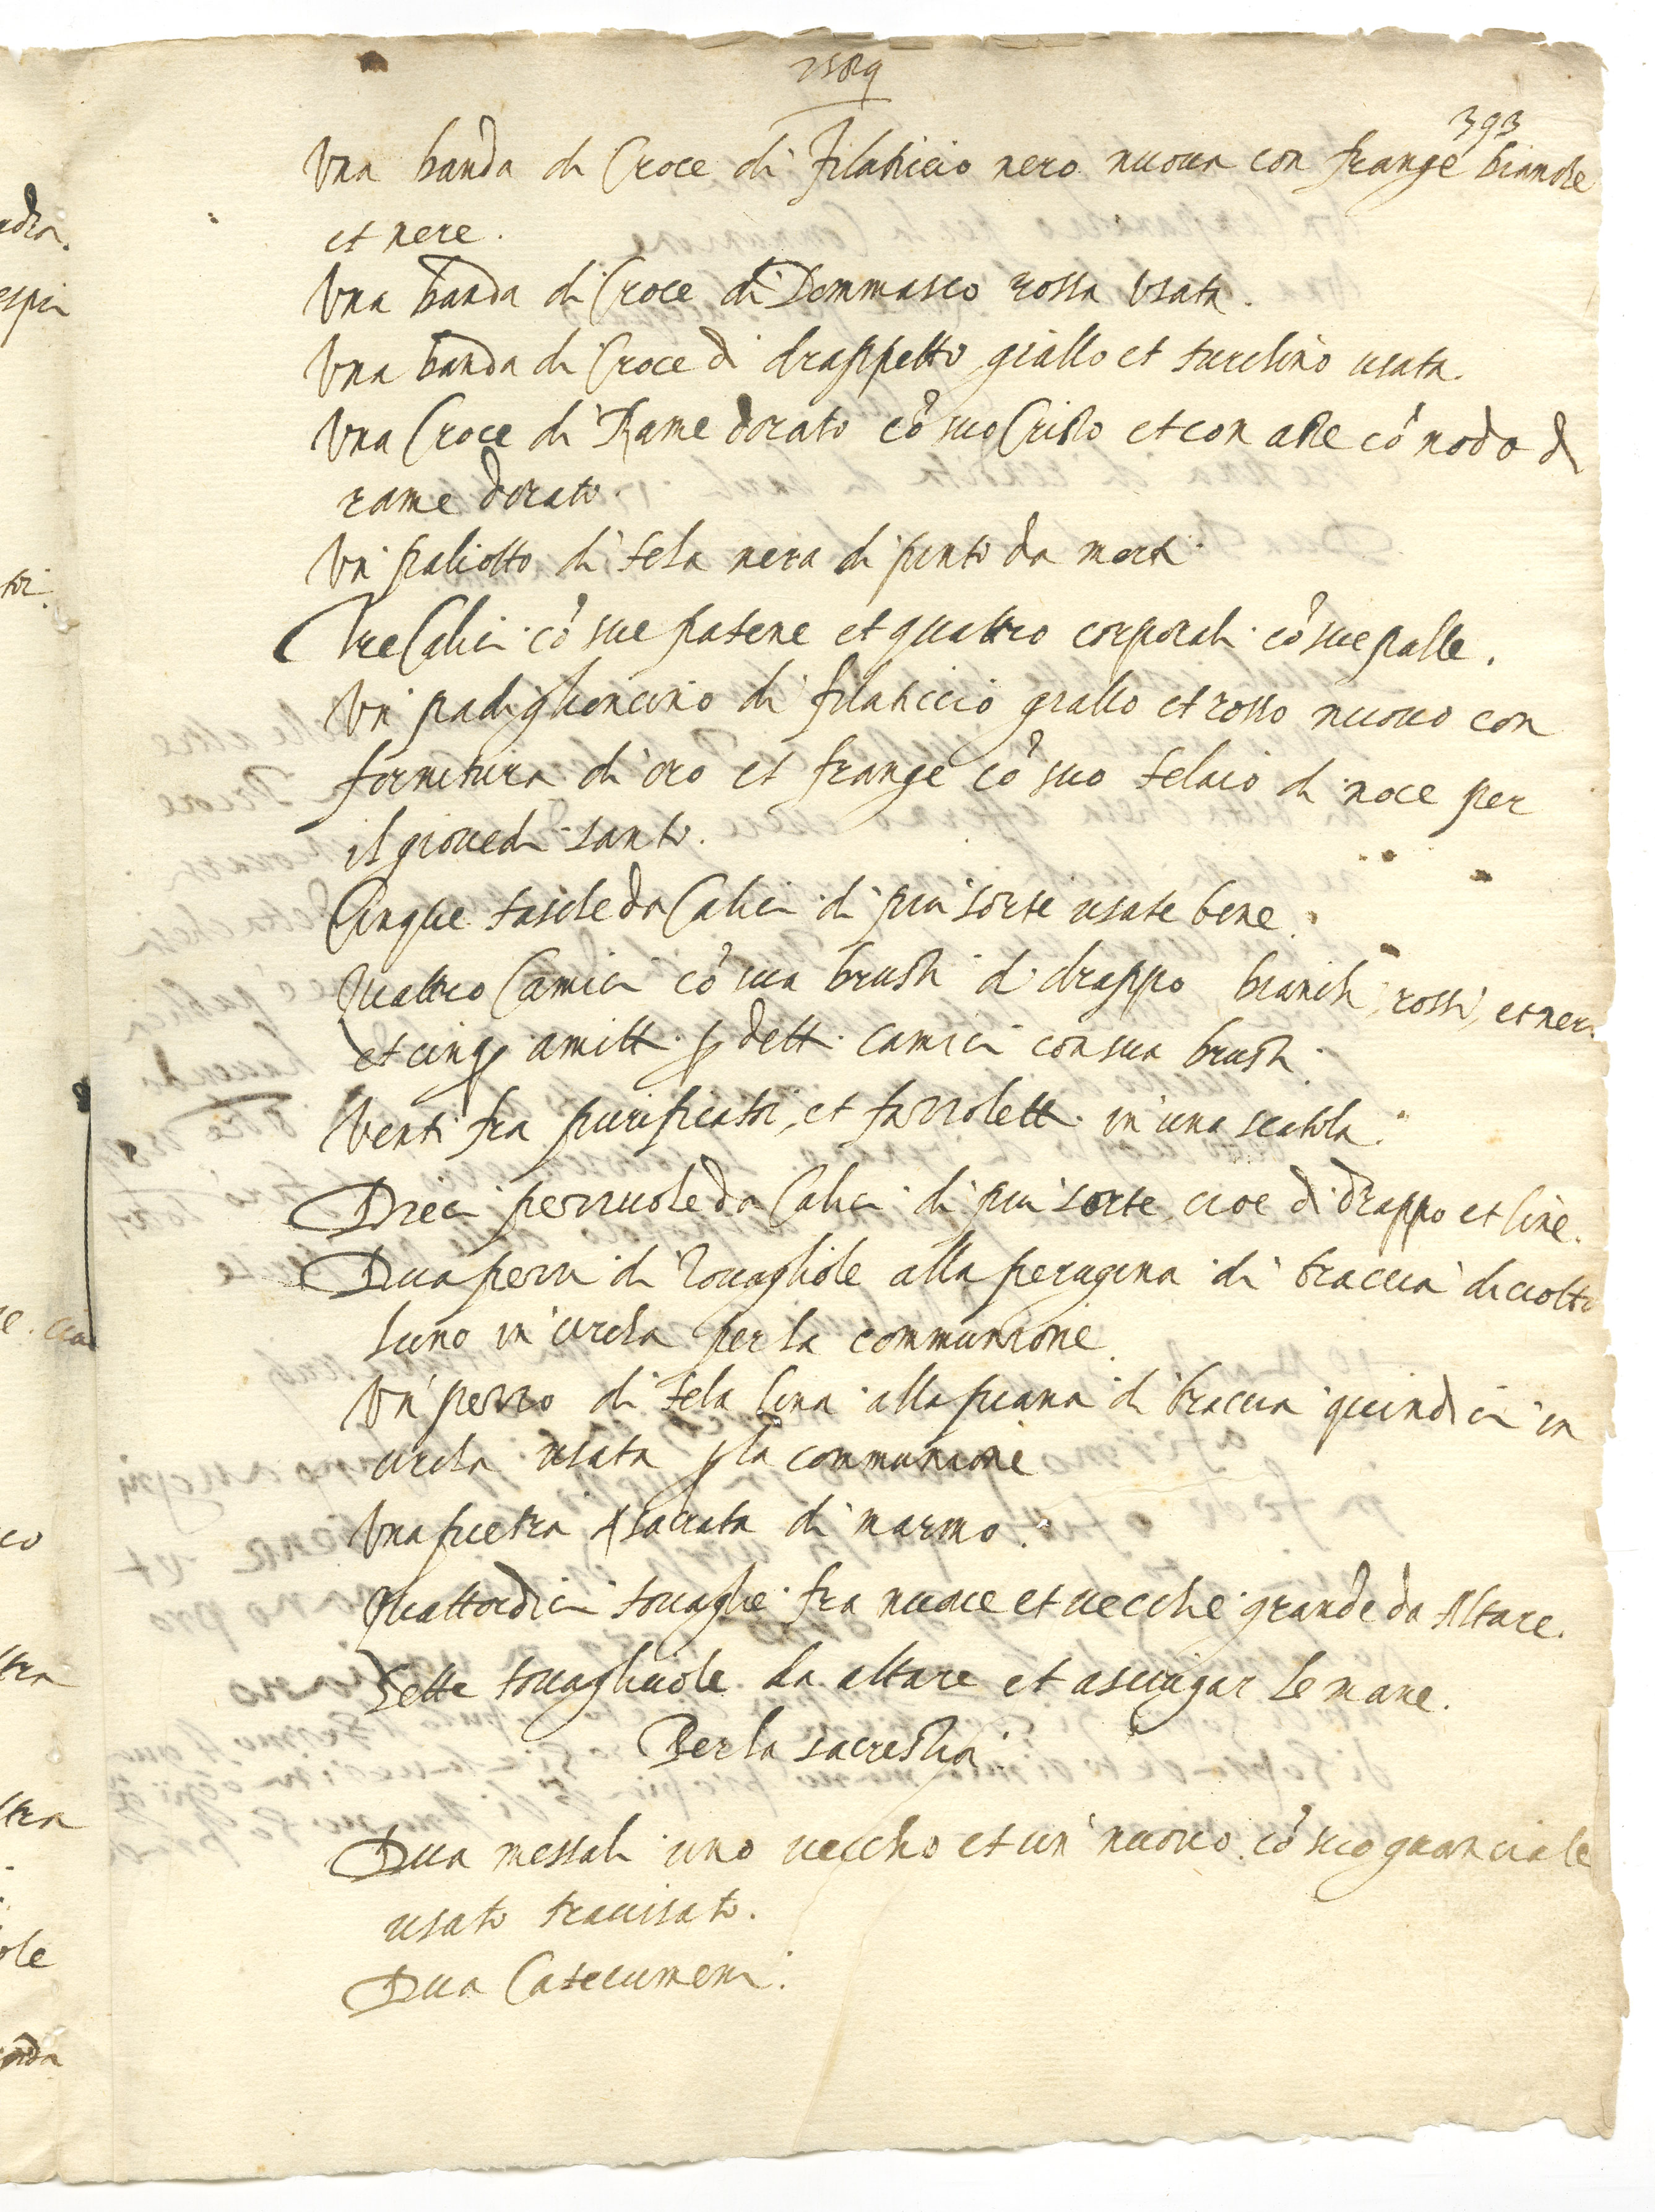 1589
393
Una banda di Croce di filaticcio nero nuova con frange bianche
et nere.
Una banda di Croce di Dommasco rossa usata.
Una banda di Croce di drappetto giallo et turchino usata.
Una Croce di Rame dorato cō suo Cristo et con aste cō nodo di
rame dorato.
Un paliotto di tela nera dipinto da morti.
Tre Calici cō sue patene et quattro corporali cō sue palle.
Un padiglioncino di filaticcio giallo et rosso nuovo con
fornitura di oro et frange cō suo telaio di noce per
il giovedi santo.
Cinque tasche da Calici di piu sorte usate bene.
Quattro Camici cō sua brusti di drappo bianchi, rossi, et neri
et cinqȝ amitti ꝑ detti camici con sua brusti.
Venti fra purificatoi, et fazzoletti in una scatola.
Dieci pezzuole da Calici di piu sorte, cioe di drappo et line.
Dua pezzi di Tovagliole alla perugina di braccia diciotto
luno in circha per la communione.
Un pezzo di tela lina alla piana di braccia quindici in
circha usata ꝑ la communione
Una pietra sacrata di marmo.
Quattordici tovaglie fra nuove et vecchie grande da Altare.
Sette tovagliuole da altare et asciugar le mane.
Per la sacrestia
Dua messali uno vecchio et un nuovo cō suo guanciale
usato travisato.
Dua Catecumeni.